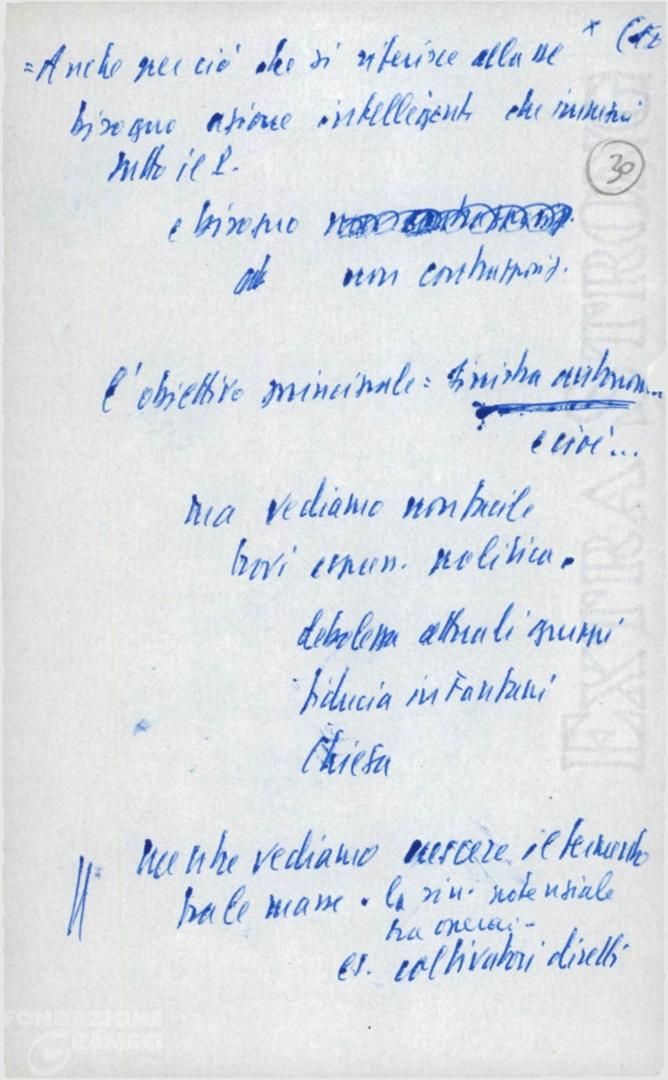 x (
30
= Anche per ciò che si riferisce alla DC
bisogno azione intelligente che impegni
tutto il P.
e bisogno
non contrappos.
l'obiettivo principale = sinistra autonom..
e cioè...
ma vediamo non facile
trovi espress. politica.
debolezza attuali gruppi
fiducia in Fanfani
Chiesa
mentre vediamo crescere il fermento
tra le masse. la sin. potenziale
tra operai -
es. coltivatori diretti
EXTRA STRONG
FONDAZIONE
GRAMSCI